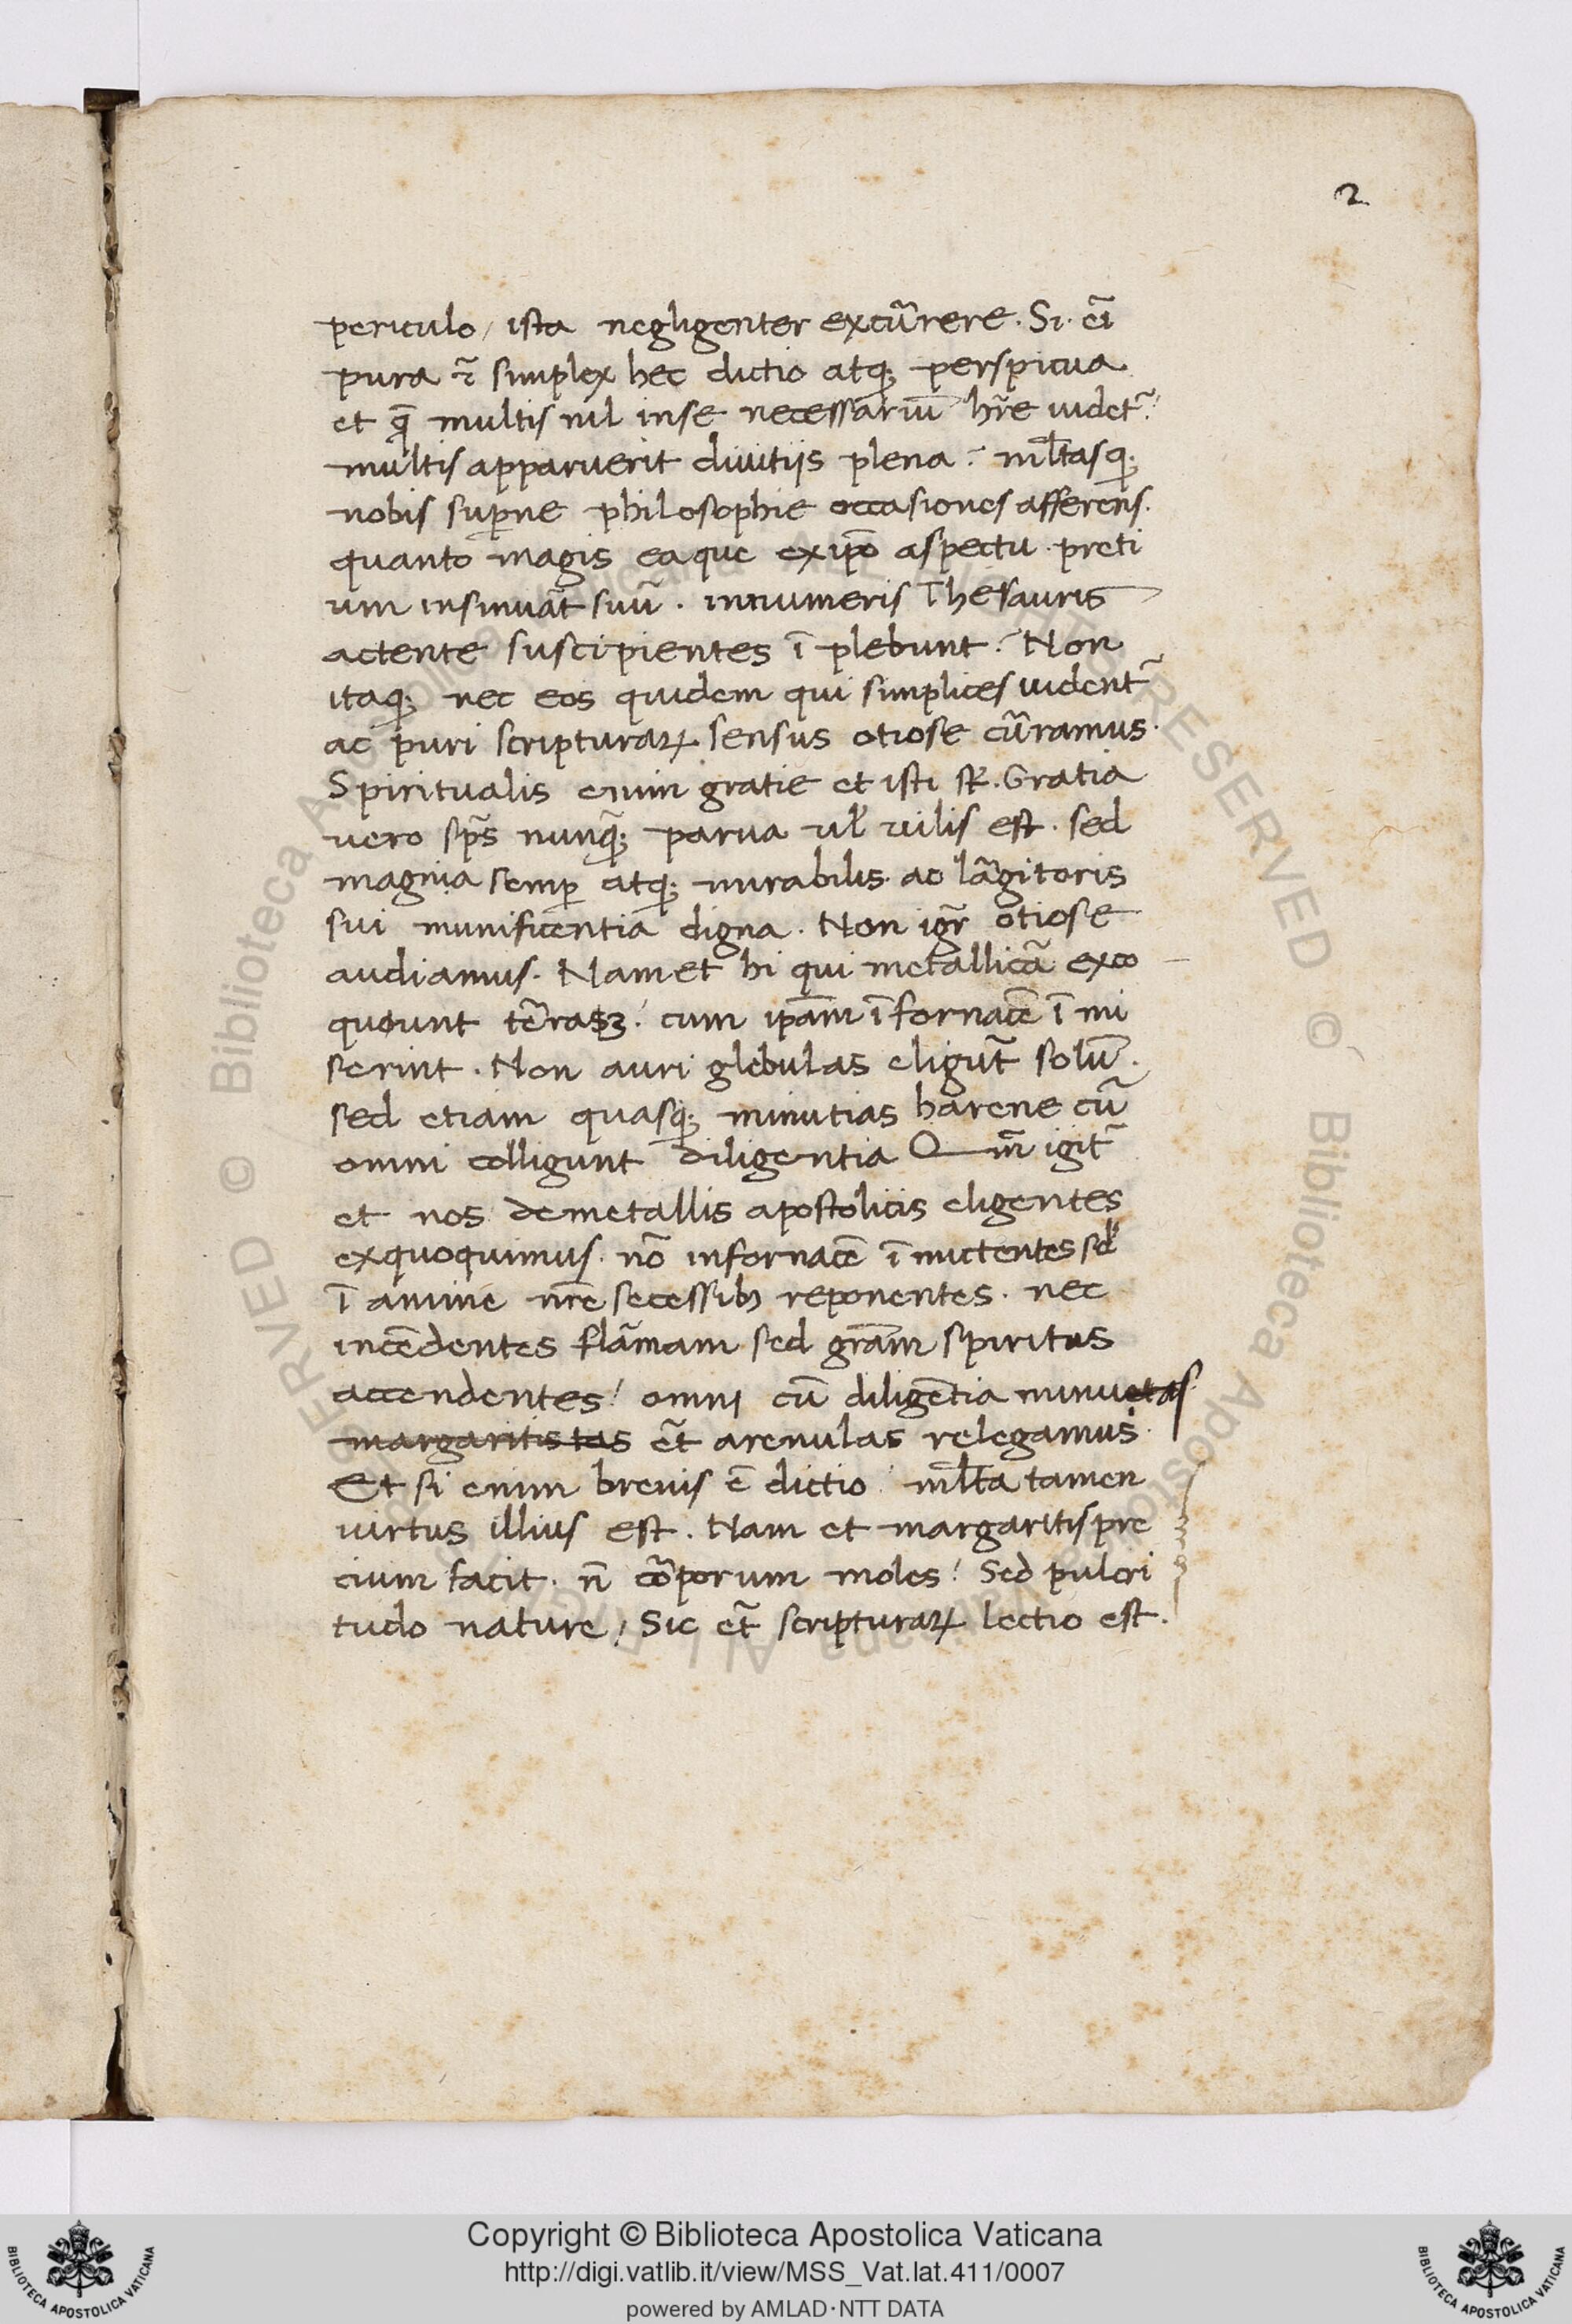 2
periculo / ista negligenter excũrere. Si. ei᷃
pura ⁊ simplex hec dictio atq; perspicua
et q̄ multis nil inse necessariũ hr̃e uidet᷃.
multis apparuerit diuitijs plena. ml̃tasq;
nobis sup̱ne philosophie occasiones afferens.
quanto magis ea que ex ip̃o aspectu preti
um insinuãt suũ. innumeris Thesauris
actente suscipientes ĩ plebunt. Non
itaq; nec eos quidem qui simplices uident᷃
ac puri scripturaꝝ sensus otiose cũramus.
Spiritualis enim gratie et isti st̃. Gratia
uero sp̃s nunq̃; parua ul̃ uilis est. sed
magnia semp̱ atq; mirabilis. ac lãgitoris
sui munificentia digna. Non igr̃ otiose
audiamus. Nam et hi qui metallicã exco
quount tẽrasꝫ. cum ip̃am ĩ fornacẽ ĩ mi
serint. Non auri glebulas eligũt solũ.
sed etiam quasq; minutias harene cũ
omni colligunt diligentia Qm̃ igit᷃
et nos demetallis apostolicis eligentes
exquoquimus. nõ infornacẽ ĩ mictentes sd̾
ĩ anime nr̃e secessibꝫ reponentes. nec
incẽdentes flãmam sed gr̃am spiritus
accendentes / omni cũ diligẽtia minuetas
margaritis tas et̃ arenulas relegamus.
Et si enim breuis ẽ dictio / ml̃ta tamen
uirtus illius est. Nam et margaritis pre
cium facit. ñ cõporum moles / Sed pulcri
tudo nature / Sic et̃ scripturaꝝ lectio est.
© Biblioteca Apostolica Vaticana ALL RIGHTS RESERVED © Biblioteca Apostolica Vaticana ALL RIGHTS RESERVED
Copyright © Biblioteca Apostolica Vaticana
http://digi.vatlib.it/view/MSS_Vat.lat.411/0007
powered by AMLAD·NTT DATA
BIBLIOTECA APOSTOLICA VATICANA
BIBLIOTECA APOSTOLICA VATICANA